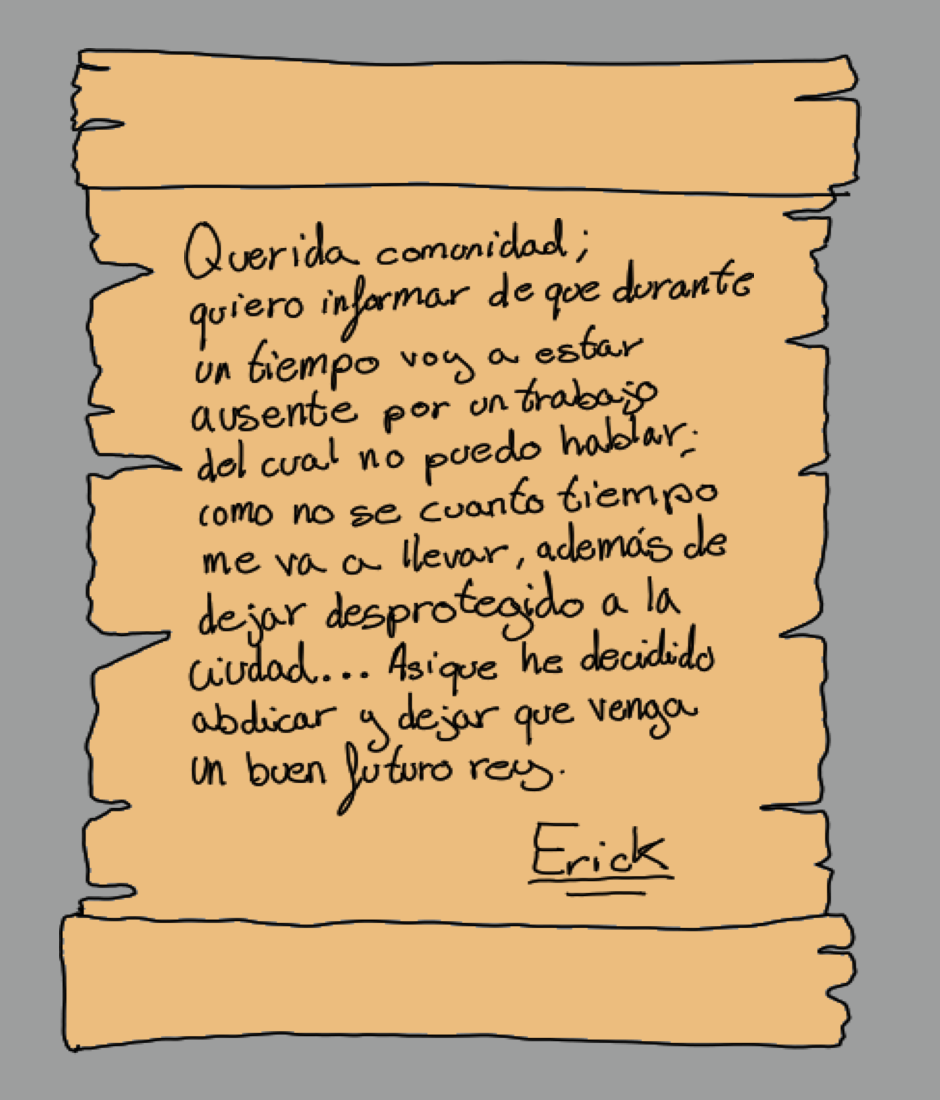 Querida comunidad;
quiero informar de que durante
un tiempo voy a estar
ausente por un trabajo
del cual no puedo hablar;
como no se cuanto tiempo
me va a llevar, además de
dejar desprotegido a la
ciudad... Asique he decidido
abdicar y dejar que venga
un buen futuro rey.
Erick